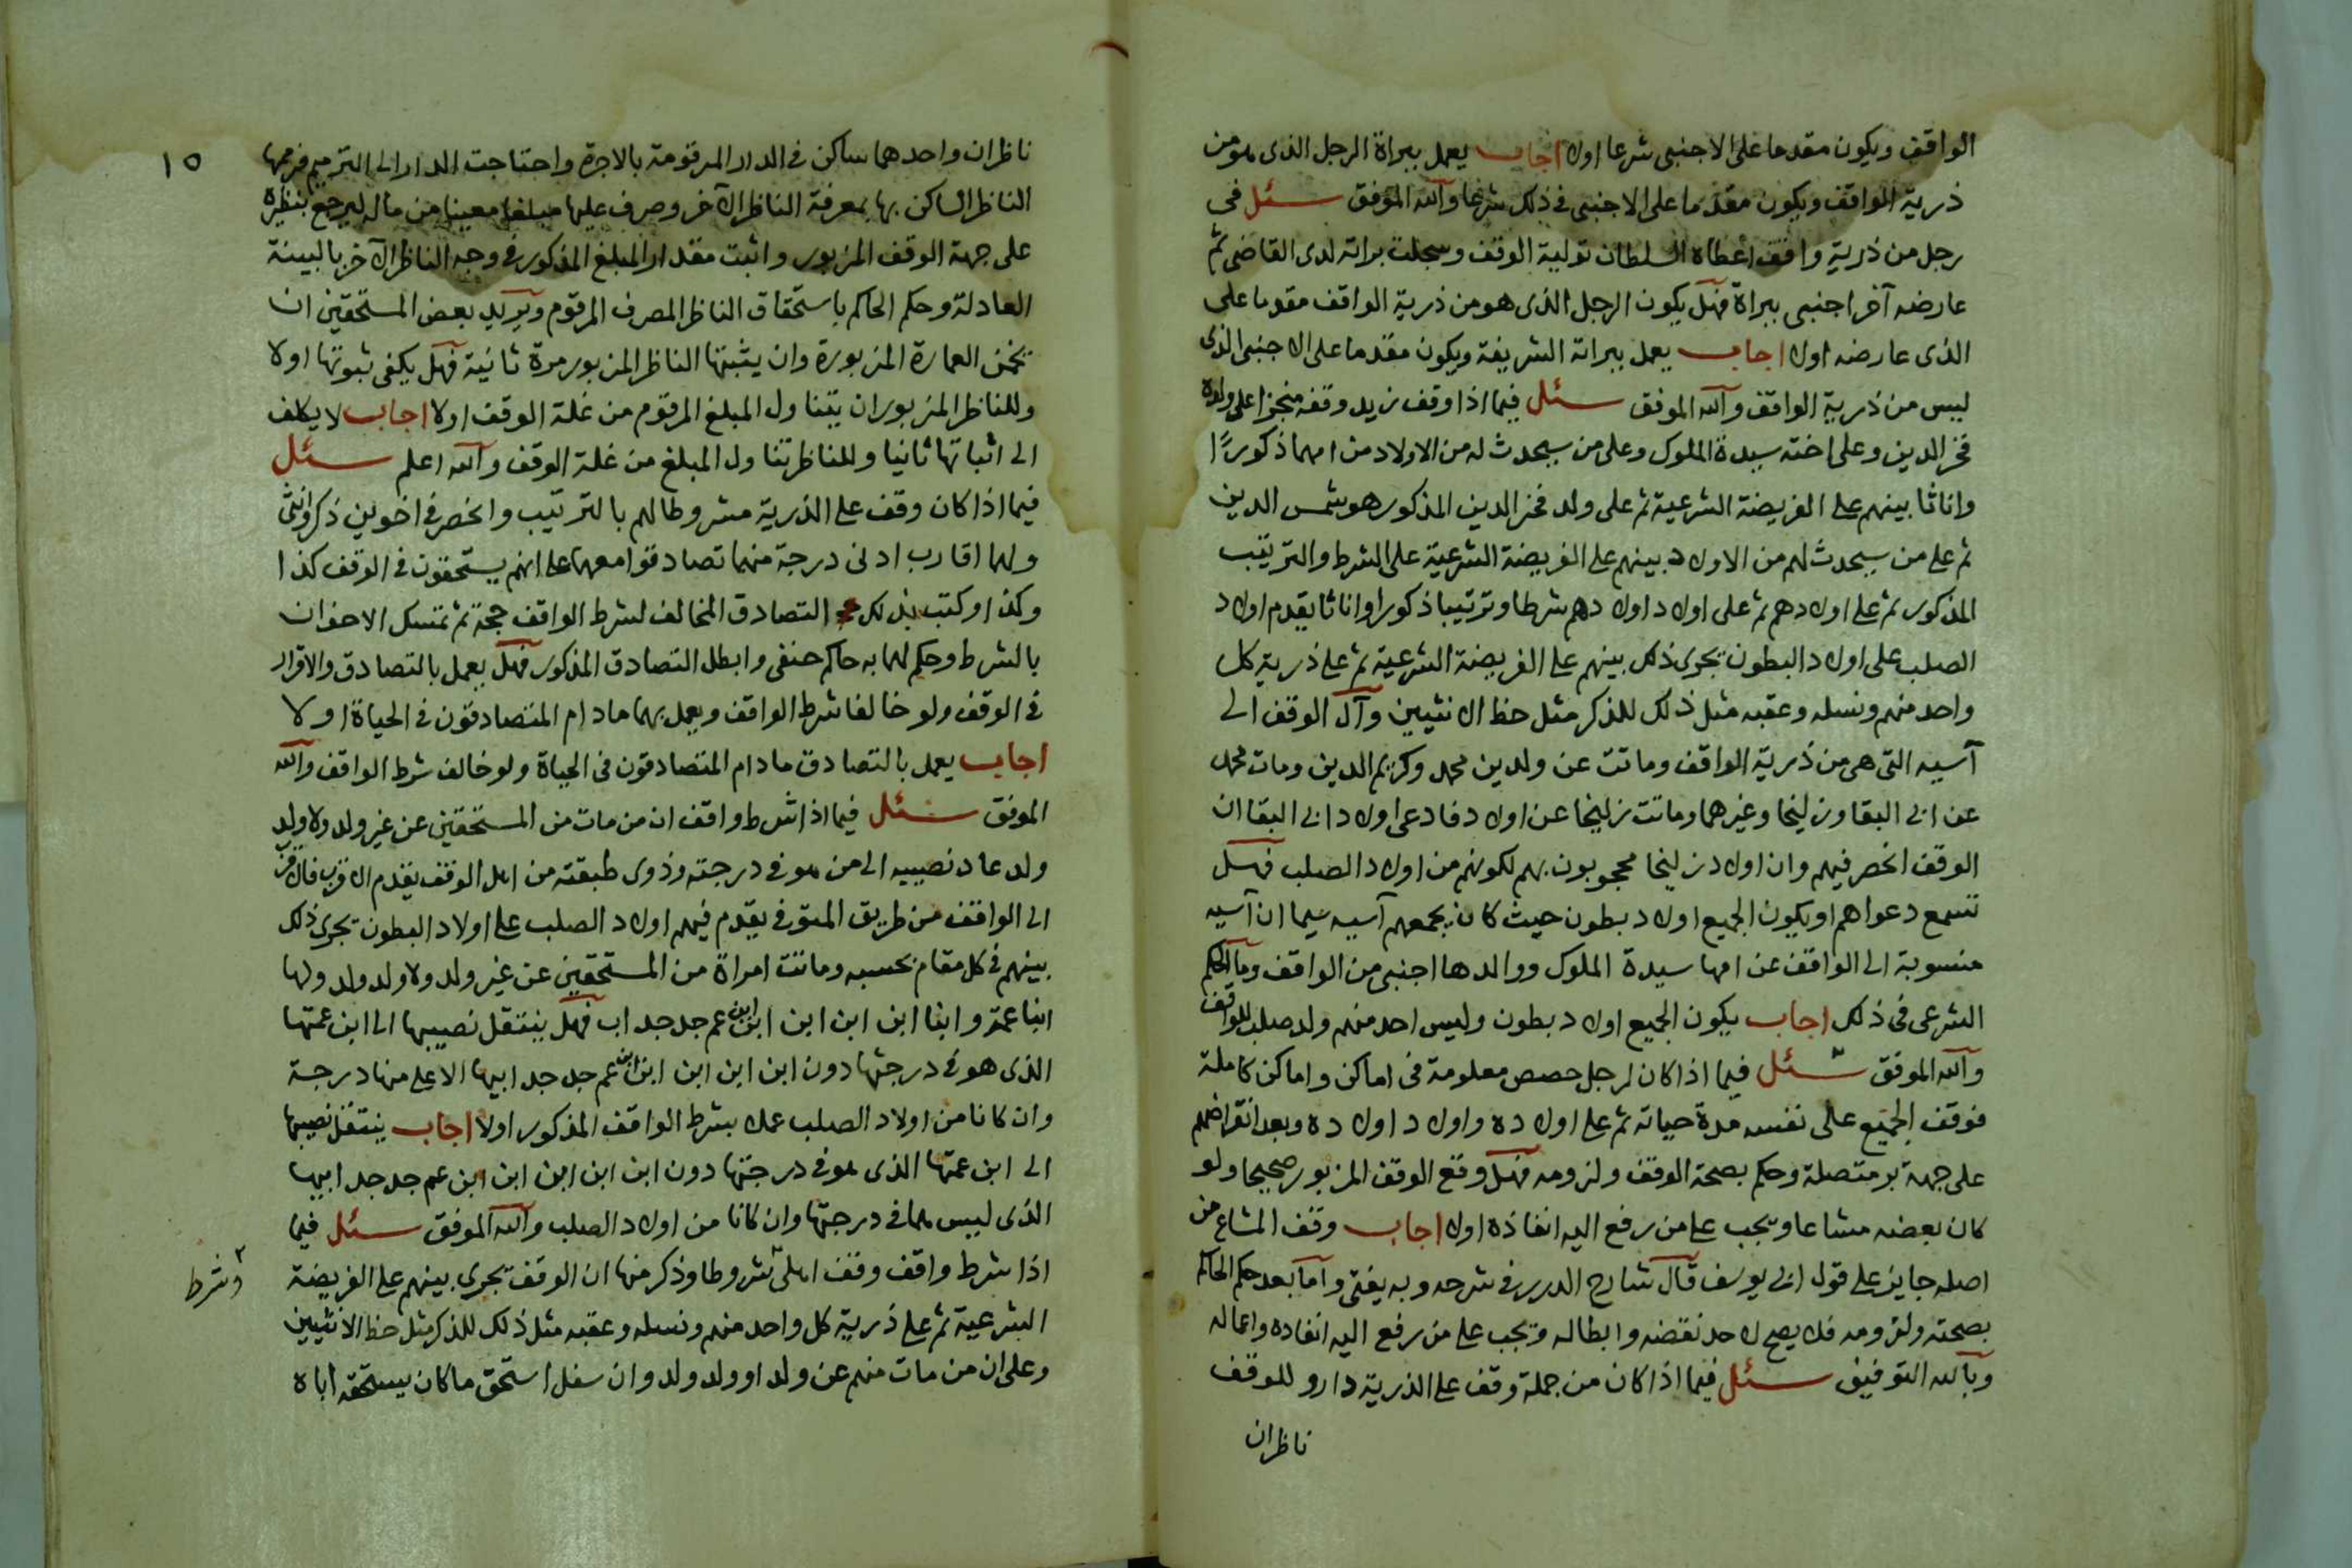 الواقف ويكون مقدما على الاجنبى شرعا اولا اجاب يعمل ببراة الرجل الذى هو من
ذرية الواقف ويكون مقدما على الاجنبى فى ذلك شرعا والله الموفق سئل فى
رجل من ذرية واقف اعطاه السلطان تولية الوقف وسجلت براته لدى القاضى ثم
عارضه آخر اجنبى ببراة فهل يكون الرجل الذى هو من ذرية الواقف مقدما على
الذى عارضه اولا اجاب يعمل ببراته الشريفة ويكون مقدما على الاجنبى الذى
ليس من ذرية الواقف والله الموفق سئل فيما اذا وقف زيد وقفه منجزا على ولده
فخر الدين وعلى اخته سيدة الملوك وعلى من سيحدث له من الاولاد من امهما ذكورًا
واناثا بينهم على الفريضة الشرعية ثم على ولد فخر الدين المذكور هو شمس الدين
ثم على من سيحدث لهم من الاولاد بينهم على الفريضة الشرعية على الشرط والترتيب
المذكور ثم على اولادهم ثم على اولاد اولادهم شرطا وترتيبا ذكورا واناثا يقدم اولاد
الصلب على اولاد البطون يجرى ذلك بينهم على الفريضة الشرعية ثم على ذرية كل
واحد منهم ونسله وعقبه مثل ذلك للذكر مثل حظ الانثيين وآل الوقف الى
آسيه التى هى من ذرية الواقف وماتت عن ولدين محمد وكريم الدين ومات محمد
عن ابى البقا وزليخا وغيرهما وماتت زليخا عن اولاد فادعى اولاد ابى البقا ان
الوقف انحصر فيهم وان اولاد زليخا محجوبون بهم لكونهم من اولاد الصلب فهل
تسمع دعواهم او يكون الجميع اولاد بطون حيث كان يجمعهم آسيه سيما ان آسيه
منسوبة الى الواقف عن امها سيدة الملوك ووالدها اجنبى من الواقف وما الحكم
الشرعى فى ذلك اجاب يكون الجميع اولاد بطون وليس احد منهم ولد صلب للواقف
والله الموفق سئل فيما اذا كان لرجل حصص معلومة فى اماكن واماكن كاملة
فوقف الجميع على نفسه مدة حياته ثم على اولاده واولاد اولاده وبعد انقراضهم
على جهة بر متصلة وحكم بصحة الوقف ولزومه فهل وقع الوقف المزبور صحيحا ولو
كان بعضه مشاعا ويجب على من رفع اليه انفاذه اولا اجاب وقف المشاع من
اصله جايز على قول ابى يوسف قال شارح الدرر فى شرحه وبه يفتى واما بعد حكم الحاكم
بصحته ولزومه فلا يصح لاحد نقضه وابطاله ويجب على من رفع اليه انفاده واعماله
وبالله التوفيق سئل فيما اذا كان من جملة وقف على الذرية دار وللوقف
ناظران
١٥
ناظران واحدهما ساكن فى الدار المرقومة بالاجرة واحتاجت الدار الى الترميم فرمها
الناظر الساكن بها بمعرفة الناظر الآخر وصرف عليها مبلغا معينا من ماله ليرجع بنظيره
على جهة الوقف المزبور واثبت مقدار المبلغ المذكور فى وجه الناظر الآخر بالبينة
العادلة وحكم الحاكم باستحقاق الناظر المصرف المرقوم ويريد بعض المستحقين ان
تخمن العمارة المزبورة وان يثبتها الناظر المزبور مرة ثانية فهل يكفى ثبوتها اولا
وللناظر المزبور ان يتناول المبلغ المرقوم من غلة الوقف اولا اجاب لا يكلف
الى اثباتها ثانيا وللناظر تناول المبلغ من غلة الوقف والله اعلم سئل
فيما اذا كان وقف على الذرية مشروطا لهم بالترتيب وانحصر فى اخوين ذكر وانثى
ولهما اقارب ادنى درجة منهما تصادقوا معهما على انهم يستحقون فى الوقف كذا
وكذا وكتب بذلك التصادق المخالف لشرط الواقف حجة ثم تمسك الاخوان
بالشرط وحكم لهما به حاكم حنفى وابطل التصادق المذكور فهل يعمل بالتصادق والاقرار
فى الوقف ولو خالفا شرط الواقف ويعمل بهما ما دام المتصادقون فى الحياة اولا
اجاب يعمل بالتصادق ما دام المتصادقون فى الحياة ولو خالف شرط الواقف والله
الموفق سئل فيما اذا شرط واقف ان من مات من المستحقين عن غير ولد ولا ولد
ولد عاد نصيبه الى من هو فى درجته وذوى طبقته من اهل الوقف يقدم الاقرب فالاقرب
الى الواقف من طريق المتوفى يقدم فيهم اولاد الصلب على اولاد البطون يجرى ذلك
بينهم فى كل مقام بحسبه وماتت امراة من المستحقين عن غير ولد ولا ولد ولد ولها
ابنا عمة وابنا ابن ابن ابن ابن ابن عم جد جد اب فهل ينتقل نصيبها الى ابن عمتها
الذى هو فى درجتها دون ابن ابن ابن ابن ابن عم جد جد ابيها الاعلى منها درجة
وان كانا من اولاد الصلب عملا بشرط الواقف المذكور اولا اجاب ينتقل نصيبها
الى ابن عمتها الذى هو فى درجتها دون ابن ابن ابن ابن ابن عم جد جد ابيها
الذى ليس هما فى درجتها وان كانا من اولاد الصلب والله الموفق سئل فيما
اذا شرط واقف وقف اهلى شروطا وذكر منها ان الوقف يجرى بينهم على الفريضة
الشرعية ثم على ذرية كل واحد منهم ونسله وعقبه مثل ذلك للذكر مثل حظ الانثيين
وعلى ان من مات منهم عن ولد او ولد ولد وان سفل استحق ما كان يستحقه اباه
وشرط